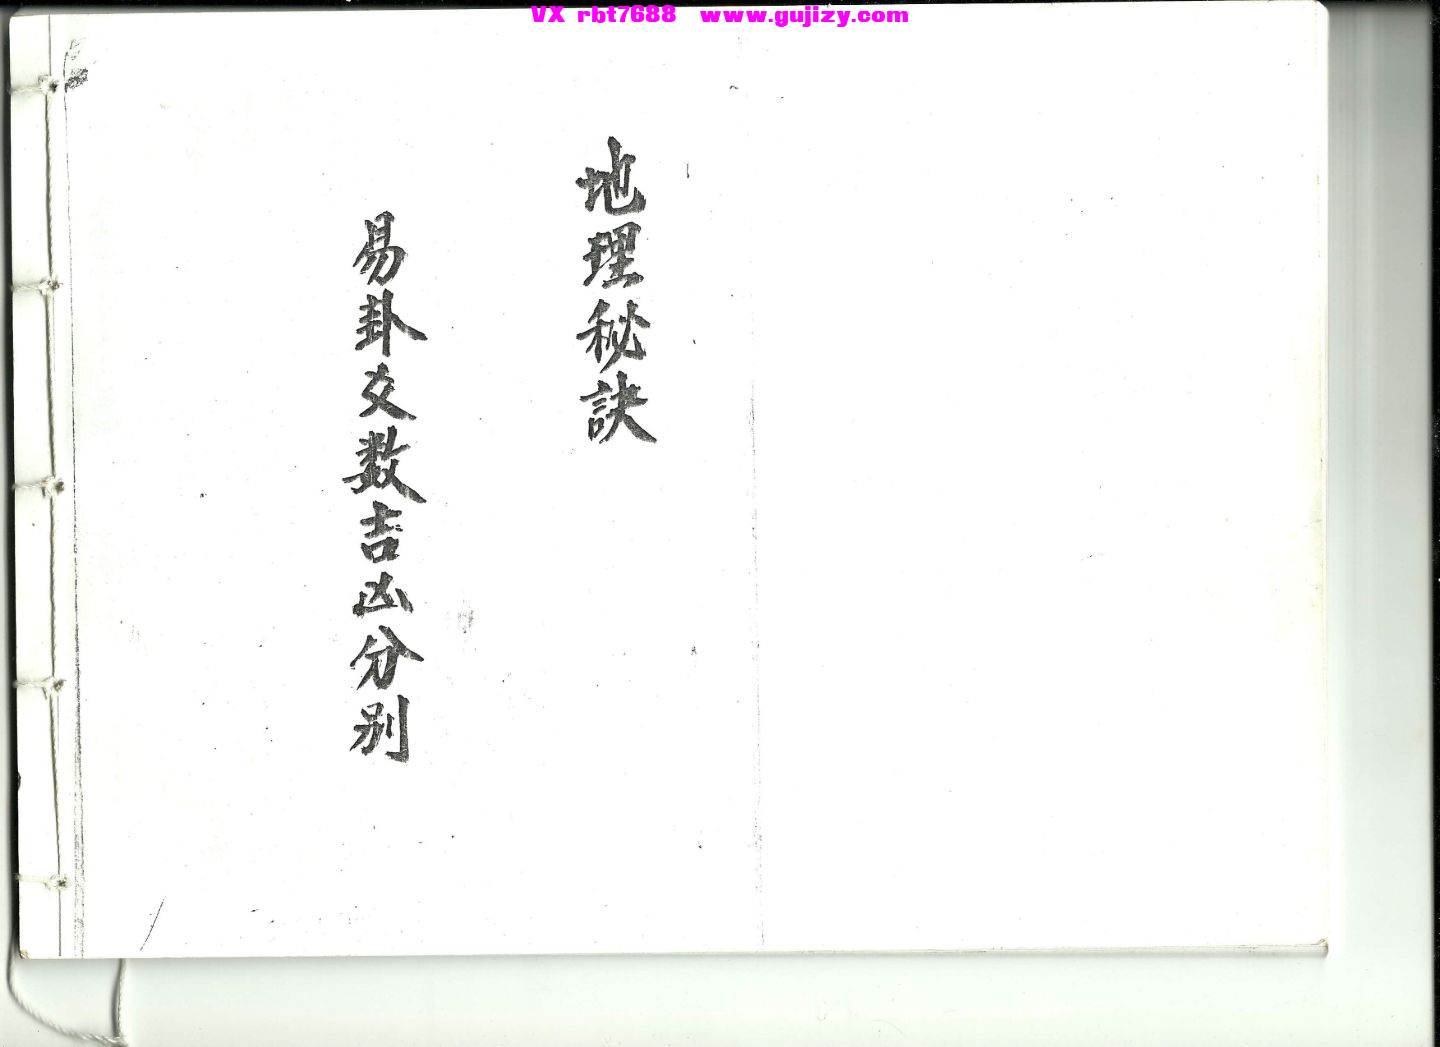 VX rbt7688 www.gujizy.com
地理秘訣
易卦爻数吉凶分别